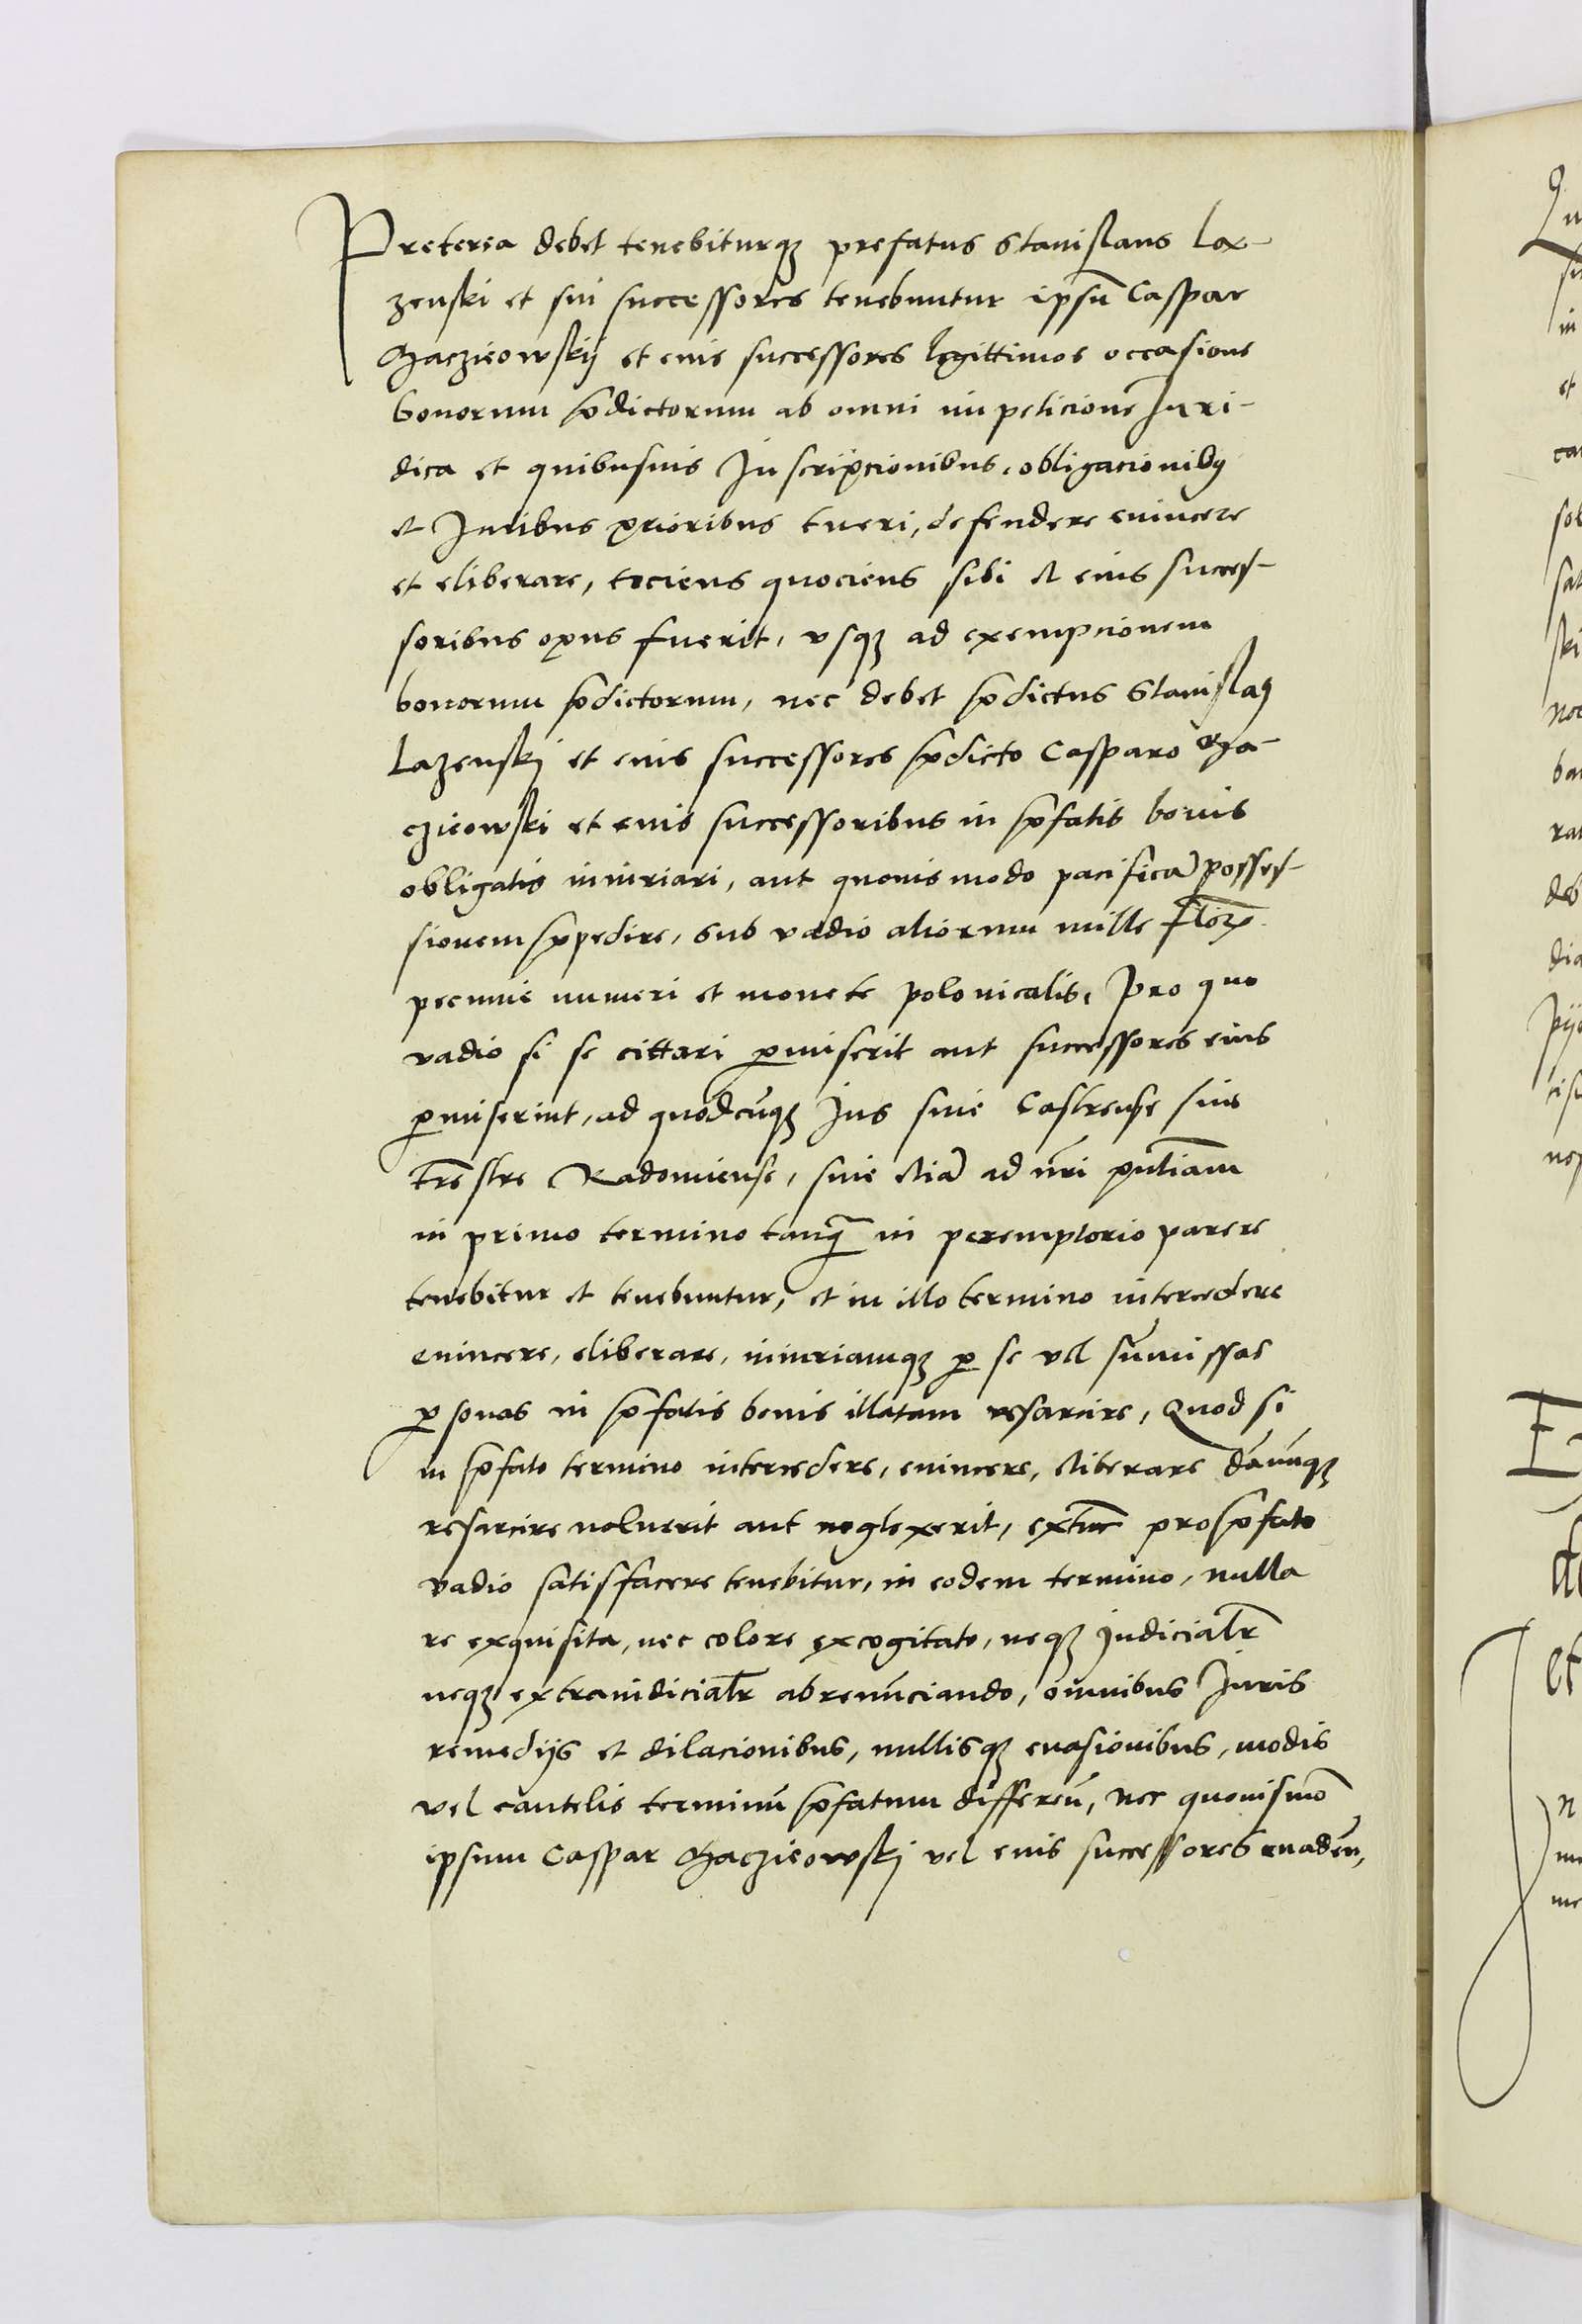 Preterea debet tenebiturqꝫ prefatus Stanislaus Laʒ-
zenski et sui successores tenebuntur ipsū Caspar
Maczieowskij et eius successores legittimos occasione
bonorum p̄dictorum ab omni impeticione Juri-
dica et quibusuis Inscripcionibus, obligacionibꝰ
et Juribus prioribus tueri, defendere euincere
et eliberare, tociens quociens sibi et eius succes-
soribus opus fuerit, vsqꝫ ad exempcionem
bonorum p̄dictorum, nec debet p̄dictus Stanislaꝰ
Lazenskj et eius successores p̄dicto Casparo Ma-
czieowski et eius successoribus in p̄fatis bonis
obligatis iniuriari, aut quouis modo pacificā posses-
sionem p̄pedire, sub vadio aliorum mille floꝝ
pecunie numeri et monete polonicalis, Pro quo
vadio si se cittari ꝑmiserit aut successores eius
ꝑmiserint, ad quodcūqꝫ Jus siue Castrense siue
tr̄estre Radomiense, siue etiā ad nr̄i pn̄tiam
in primo termino tanq̄ in peremptorio parere
tenebitur et tenebuntur, et in illo termino intercedere
euincere, eliberare, iniuriamqꝫ ꝑ se vel sūmissas
ꝑsonas in p̄fatis bonis illatam resarcire, Quod si
in p̄fato termino intercedere, euincere, eliberare dānūqꝫ
resarcire noluerit aut neglexerit, extūc pro p̄fato
vadio satisfacere tenebitur, in eodem termino, nulla
re exquisita, nec colore excogitato, neqꝫ Judicialr̄
neqꝫ extraiudicialr̄ abrenūciando, omnibus Juris
remedijs et dilacionibus, nullisqꝫ euasionibus, modis
vel cautelis terminū p̄fatum differeñ, nec quouismo
ipsum Caspar Maczieowskj vel eius successores euadeñ,